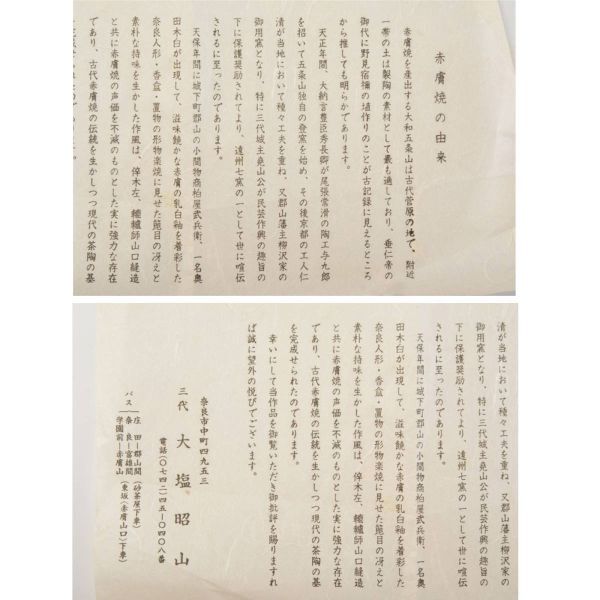 赤膚焼の由来
赤膚焼を産出する大和五条山は古代菅原の地で、附近
一帯の土は製陶の素材として最も適しており、垂仁帝の
御代に野見宿禰の埴作りのことが古記録に見えるところ
から推しても明らかであります。
天正年間、大納言豊臣秀長卿が尾張常滑の陶工与九郎
を招いて五条山独自の登窯を始め、その後京都の工人仁
清が当地において種々工夫を重ね、又郡山藩主柳沢家の
御用窯となり、特に三代城主堯山公が民芸作興の趣旨の
下に保護奨励されてより、遠州七窯の一として世に喧伝
されるに至ったのであります。
天保年間に城下町郡山の小間物商柏屋武兵衛、一名奥
田木白が出現して、滋味饒かな赤膚の乳白釉を着彩した
奈良人形・香盒・置物の形物楽焼に見せた箆目の冴えと
素朴な持味を生かした作風は、倅木左、轆轤師山口縫造
と共に赤膚焼の声価を不滅のものとした実に強力な存在
であり、古代赤膚焼の伝統を生かしつつ現代の茶陶の基
清が当地において種々工夫を重ね、又郡山藩主柳沢家の
御用窯となり、特に三代城主堯山公が民芸作興の趣旨の
下に保護奨励されてより、遠州七窯の一として世に喧伝
されるに至ったのであります。
天保年間に城下町郡山の小間物商柏屋武兵衛、一名奥
田木白が出現して、滋味饒かな赤膚の乳白釉を着彩した
奈良人形・香盒・置物の形物楽焼に見せた箆目の冴えと
素朴な持味を生かした作風は、倅木左、轆轤師山口縫造
と共に赤膚焼の声価を不滅のものとした実に強力な存在
であり、古代赤膚焼の伝統を生かしつつ現代の茶陶の基
を完成せられたのであります。
幸いにして当作品を御覧いただき御批評を賜りますれ
ば誠に望外の悦びでございます。
奈良市中町四九五三
三代 大塩昭山
電話(〇七四二)四五―〇四〇八番
バス
庄田―郡山間(砂茶屋下車)
奈良―富雄間
学園前―赤膚山
(東坂(赤膚山口)下車)